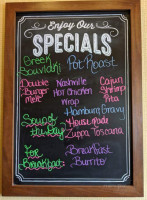 Enjoy Our
SPECIALS
Greek Pot Roast
Souvlaki
Double Nashville Cajun
Burger Hot Chicken Shrimp
Melt Wrap Pita
Hamburg Gravy
Soup of Housemade
the day Zuppa Toscana
For Breakfast
Breakfast Burrito